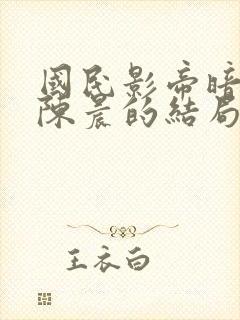 國民影帝暗
陳晨的結局
王衣白